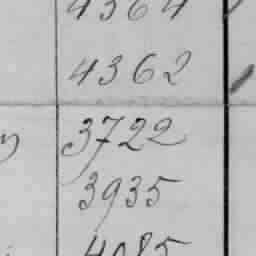 4364
4362
3722
3935
4085